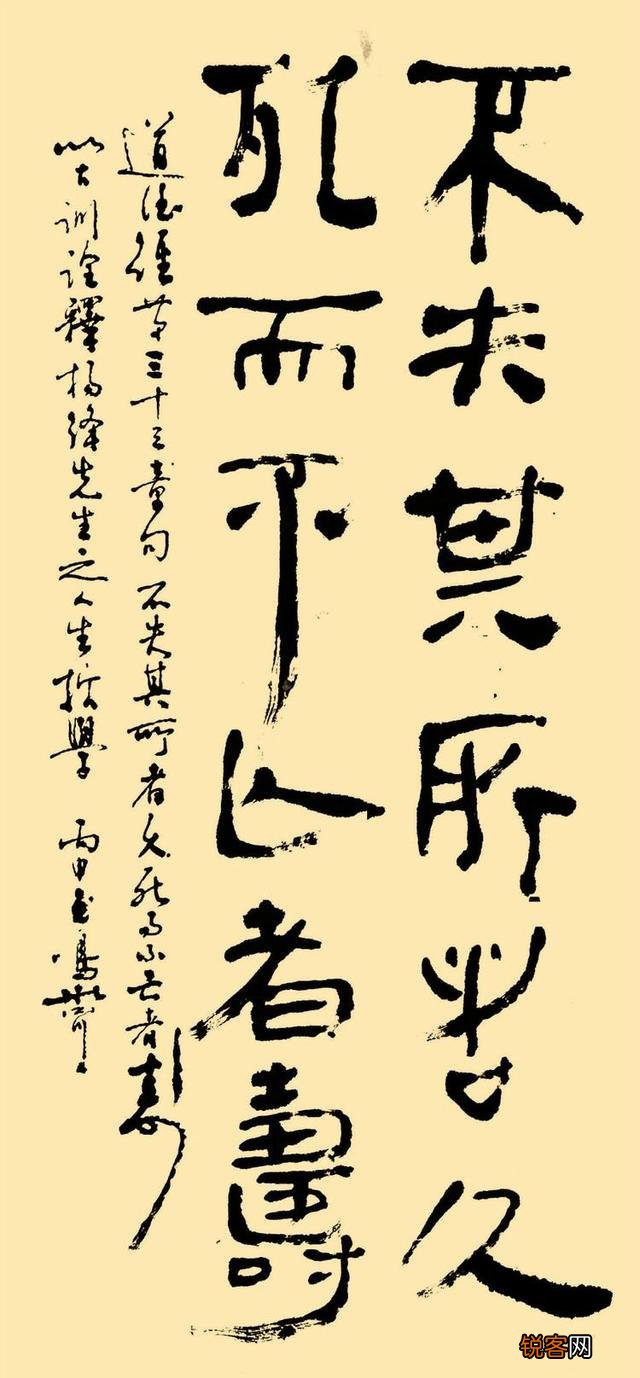 不失其所者久
死而不亡者壽
道德經第三十三章句 不失其所者久死而不亡者壽
以古訓詮釋楊絳先生之人生哲學 丙申 鳴
锐客网